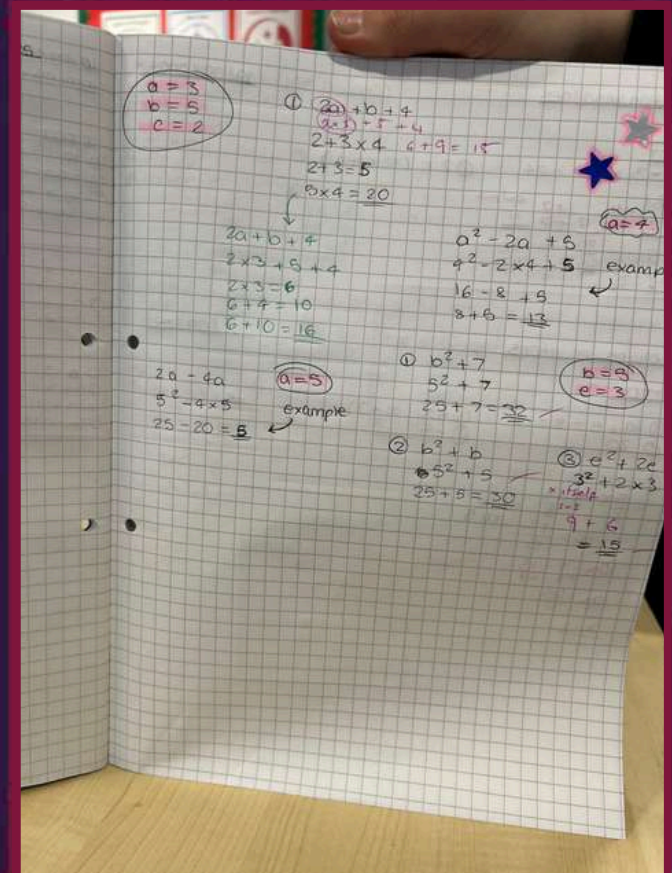 a = 3
b = 5
c = 2
① 2a + b + 4
2×3 + 5 + 4
2+3×4 6+9 = 15
2+3=5
5×4=20
2a+b+4
2×3+5+4
2×3=6
6+4=10
6+10=16
a=4
a² - 2a + 5
4² - 2×4+5
examp
16 - 8 + 5
8+5 = 13
2a - 4a
a=5
5² - 4×5
example
25 - 20 = 5
① b² + 7
5² + 7
25 + 7 = 32
b = 5
e = 3
② b² + b
5² + 5
25 + 5 = 30
③ e² + 2e
3² + 2×3
× itself
9 + 6
= 15